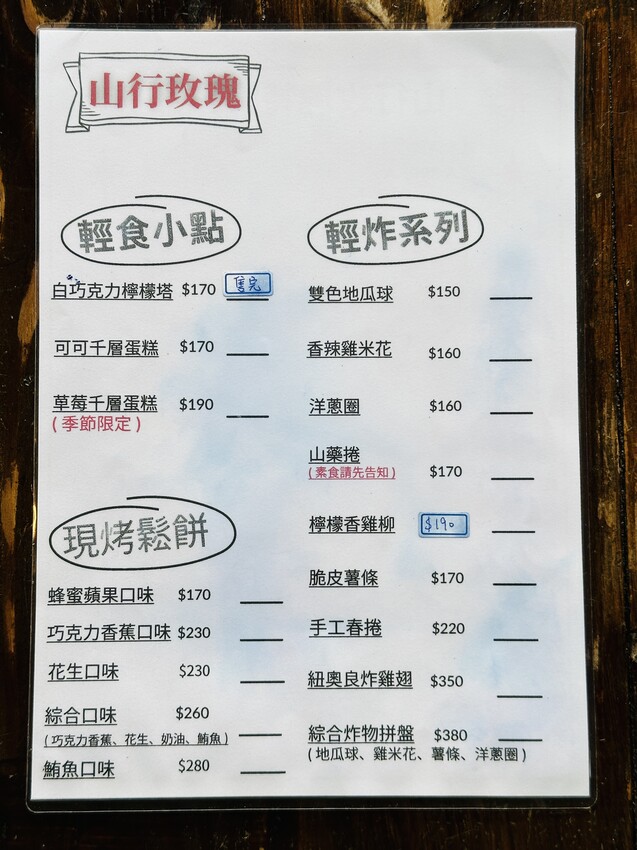 山行玫瑰
輕食小點
白巧克力檸檬塔 $170 售完
可可千層蛋糕 $170
草莓千層蛋糕 $190
(季節限定)
現烤鬆餅
蜂蜜蘋果口味 $170
巧克力香蕉口味 $230
花生口味 $230
綜合口味 $260
(巧克力香蕉、花生、奶油、鮪魚)
鮪魚口味 $280
輕炸系列
雙色地瓜球 $150
香辣雞米花 $160
洋蔥圈 $160
山藥捲
(素食請先告知) $170
檸檬香雞柳 $190
脆皮薯條 $170
手工春捲 $220
紐奧良炸雞翅 $350
綜合炸物拼盤 $380
(地瓜球、雞米花、薯條、洋蔥圈)